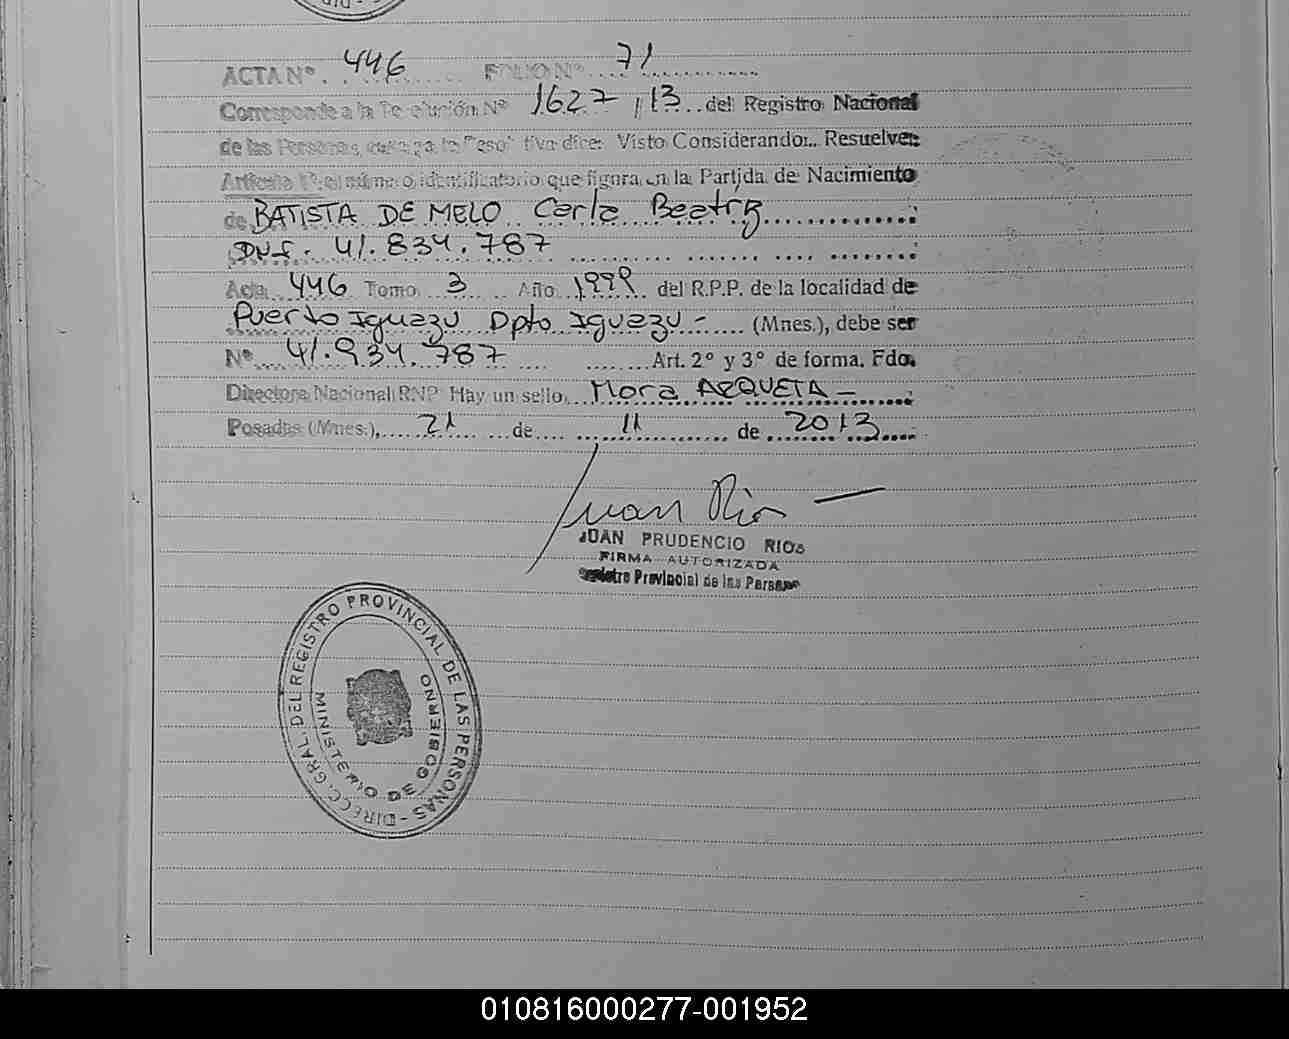 ACTA Nº. 446 FOLIO Nº 71
Corresponde a la Resolución Nº 1627/13 del Registro Nacional
de las Personas, cuya parte tiva dice: Visto Considerando:.. Resuelve:
Artículo 1º: el número identificatorio que figura en la Partida de Nacimiento
de BATISTA DE MELO Carla Beatriz
41.834.787
Acta 446 Tomo 3 Año 1999 del R.P.P. de la localidad de
Puerto Iguazú Dpto Iguazú - (Mnes.), debe ser
Nº 41.934.787 Art. 2º y 3º de forma. Fdo.
Directora Nacional RNP Hay un sello. Mora ARQUETA -
Posadas (Mnes.), 21 de 11 de 2013
Juan Rios
JUAN PRUDENCIO RIOS
FIRMA AUTORIZADA
Registro Provincial de las Personas
DIRECC. GRAL. DEL REGISTRO PROVINCIAL DE LAS PERSONAS -
MINISTERIO DE GOBIERNO
010816000277-001952